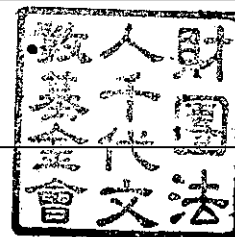 財團法
人千代文
教基金會